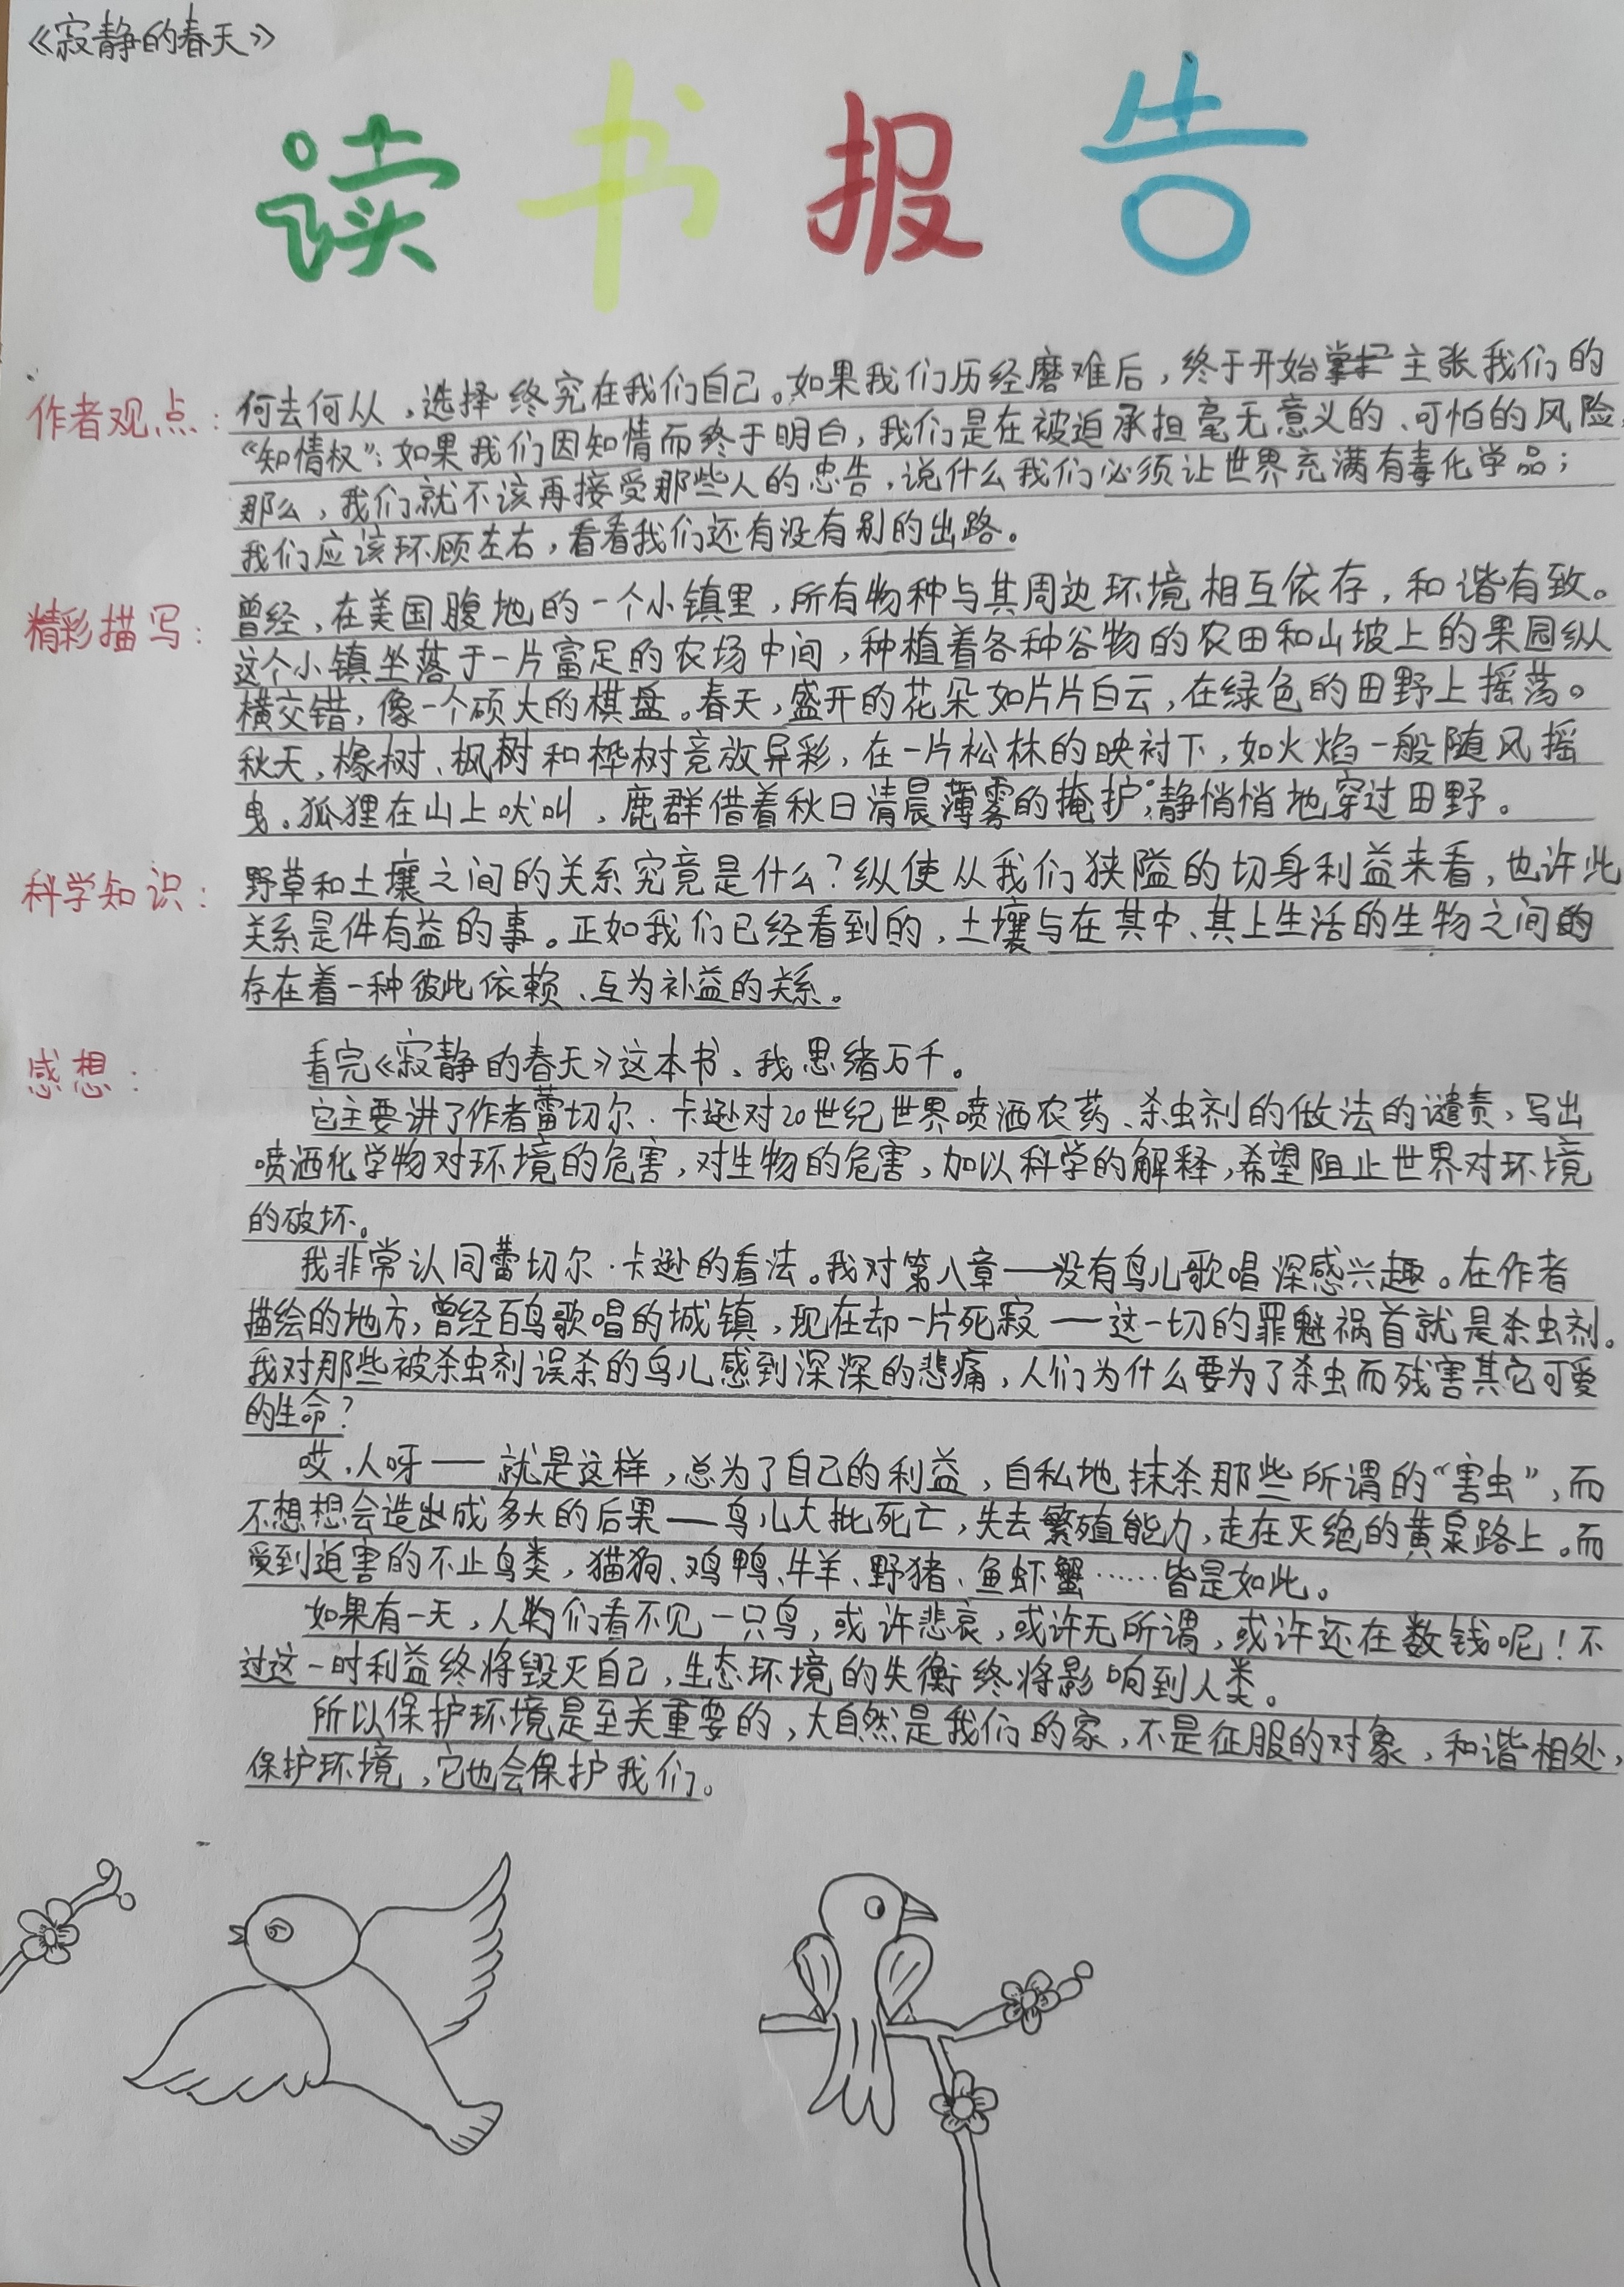 《寂静的春天》
读书报告
作者观点：何去何从，选择终究在我们自己。如果我们历经磨难后，终于开始主张我们的
“知情权”；如果我们因知情而终于明白，我们是在被迫承担毫无意义的、可怕的风险，
那么，我们就不该再接受那些人的忠告，说什么我们必须让世界充满有毒化学品；
我们应该环顾左右，看看我们还有没有别的出路。
精彩描写：曾经，在美国腹地的一个小镇里，所有物种与其周边环境相互依存，和谐有致。
这个小镇坐落于一片富足的农场中间，种植着各种谷物的农田和山坡上的果园纵
横交错，像一个硕大的棋盘。春天，盛开的花朵如片片白云，在绿色的田野上摇荡。
秋天，橡树、枫树和桦树竞放异彩，在一片松林的映衬下，如火焰一般随风摇
曳。狐狸在山上吠叫，鹿群借着秋日清晨薄雾的掩护，静悄悄地穿过田野。
科学知识：野草和土壤之间的关系究竟是什么？纵使从我们狭隘的切身利益来看，也许此
关系是件有益的事。正如我们已经看到的，土壤与在其中、其上生活的生物之间
存在着一种彼此依赖、互为补益的关系。
感想：看完《寂静的春天》这本书，我思绪万千。
它主要讲了作者蕾切尔·卡逊对20世纪世界喷洒农药、杀虫剂的做法的谴责，写出
喷洒化学物对环境的危害，对生物的危害，加以科学的解释，希望阻止世界对环境
的破坏。
我非常认同蕾切尔·卡逊的看法。我对第八章——没有鸟儿歌唱深感兴趣。在作者
描绘的地方，曾经百鸟歌唱的城镇，现在却一片死寂——这一切的罪魁祸首就是杀虫剂。
我对那些被杀虫剂误杀的鸟儿感到深深的悲痛，人们为什么要为了杀虫而残害其它可爱
的生命？
哎，人呀——就是这样，总为了自己的利益，自私地抹杀那些所谓的“害虫”，而
不想想会造出成多大的后果——鸟儿大批死亡，失去繁殖能力，走在灭绝的黄泉路上。而
受到迫害的不止鸟类，猫狗、鸡鸭、牛羊、野猪、鱼虾蟹……皆是如此。
如果有一天，人们看不见一只鸟，或许悲哀，或许无所谓，或许还在数钱呢！不
过这一时利益终将毁灭自己，生态环境的失衡终将影响到人类。
所以保护环境是至关重要的，大自然是我们的家，不是征服的对象，和谐相处，
保护环境，它也会保护我们。